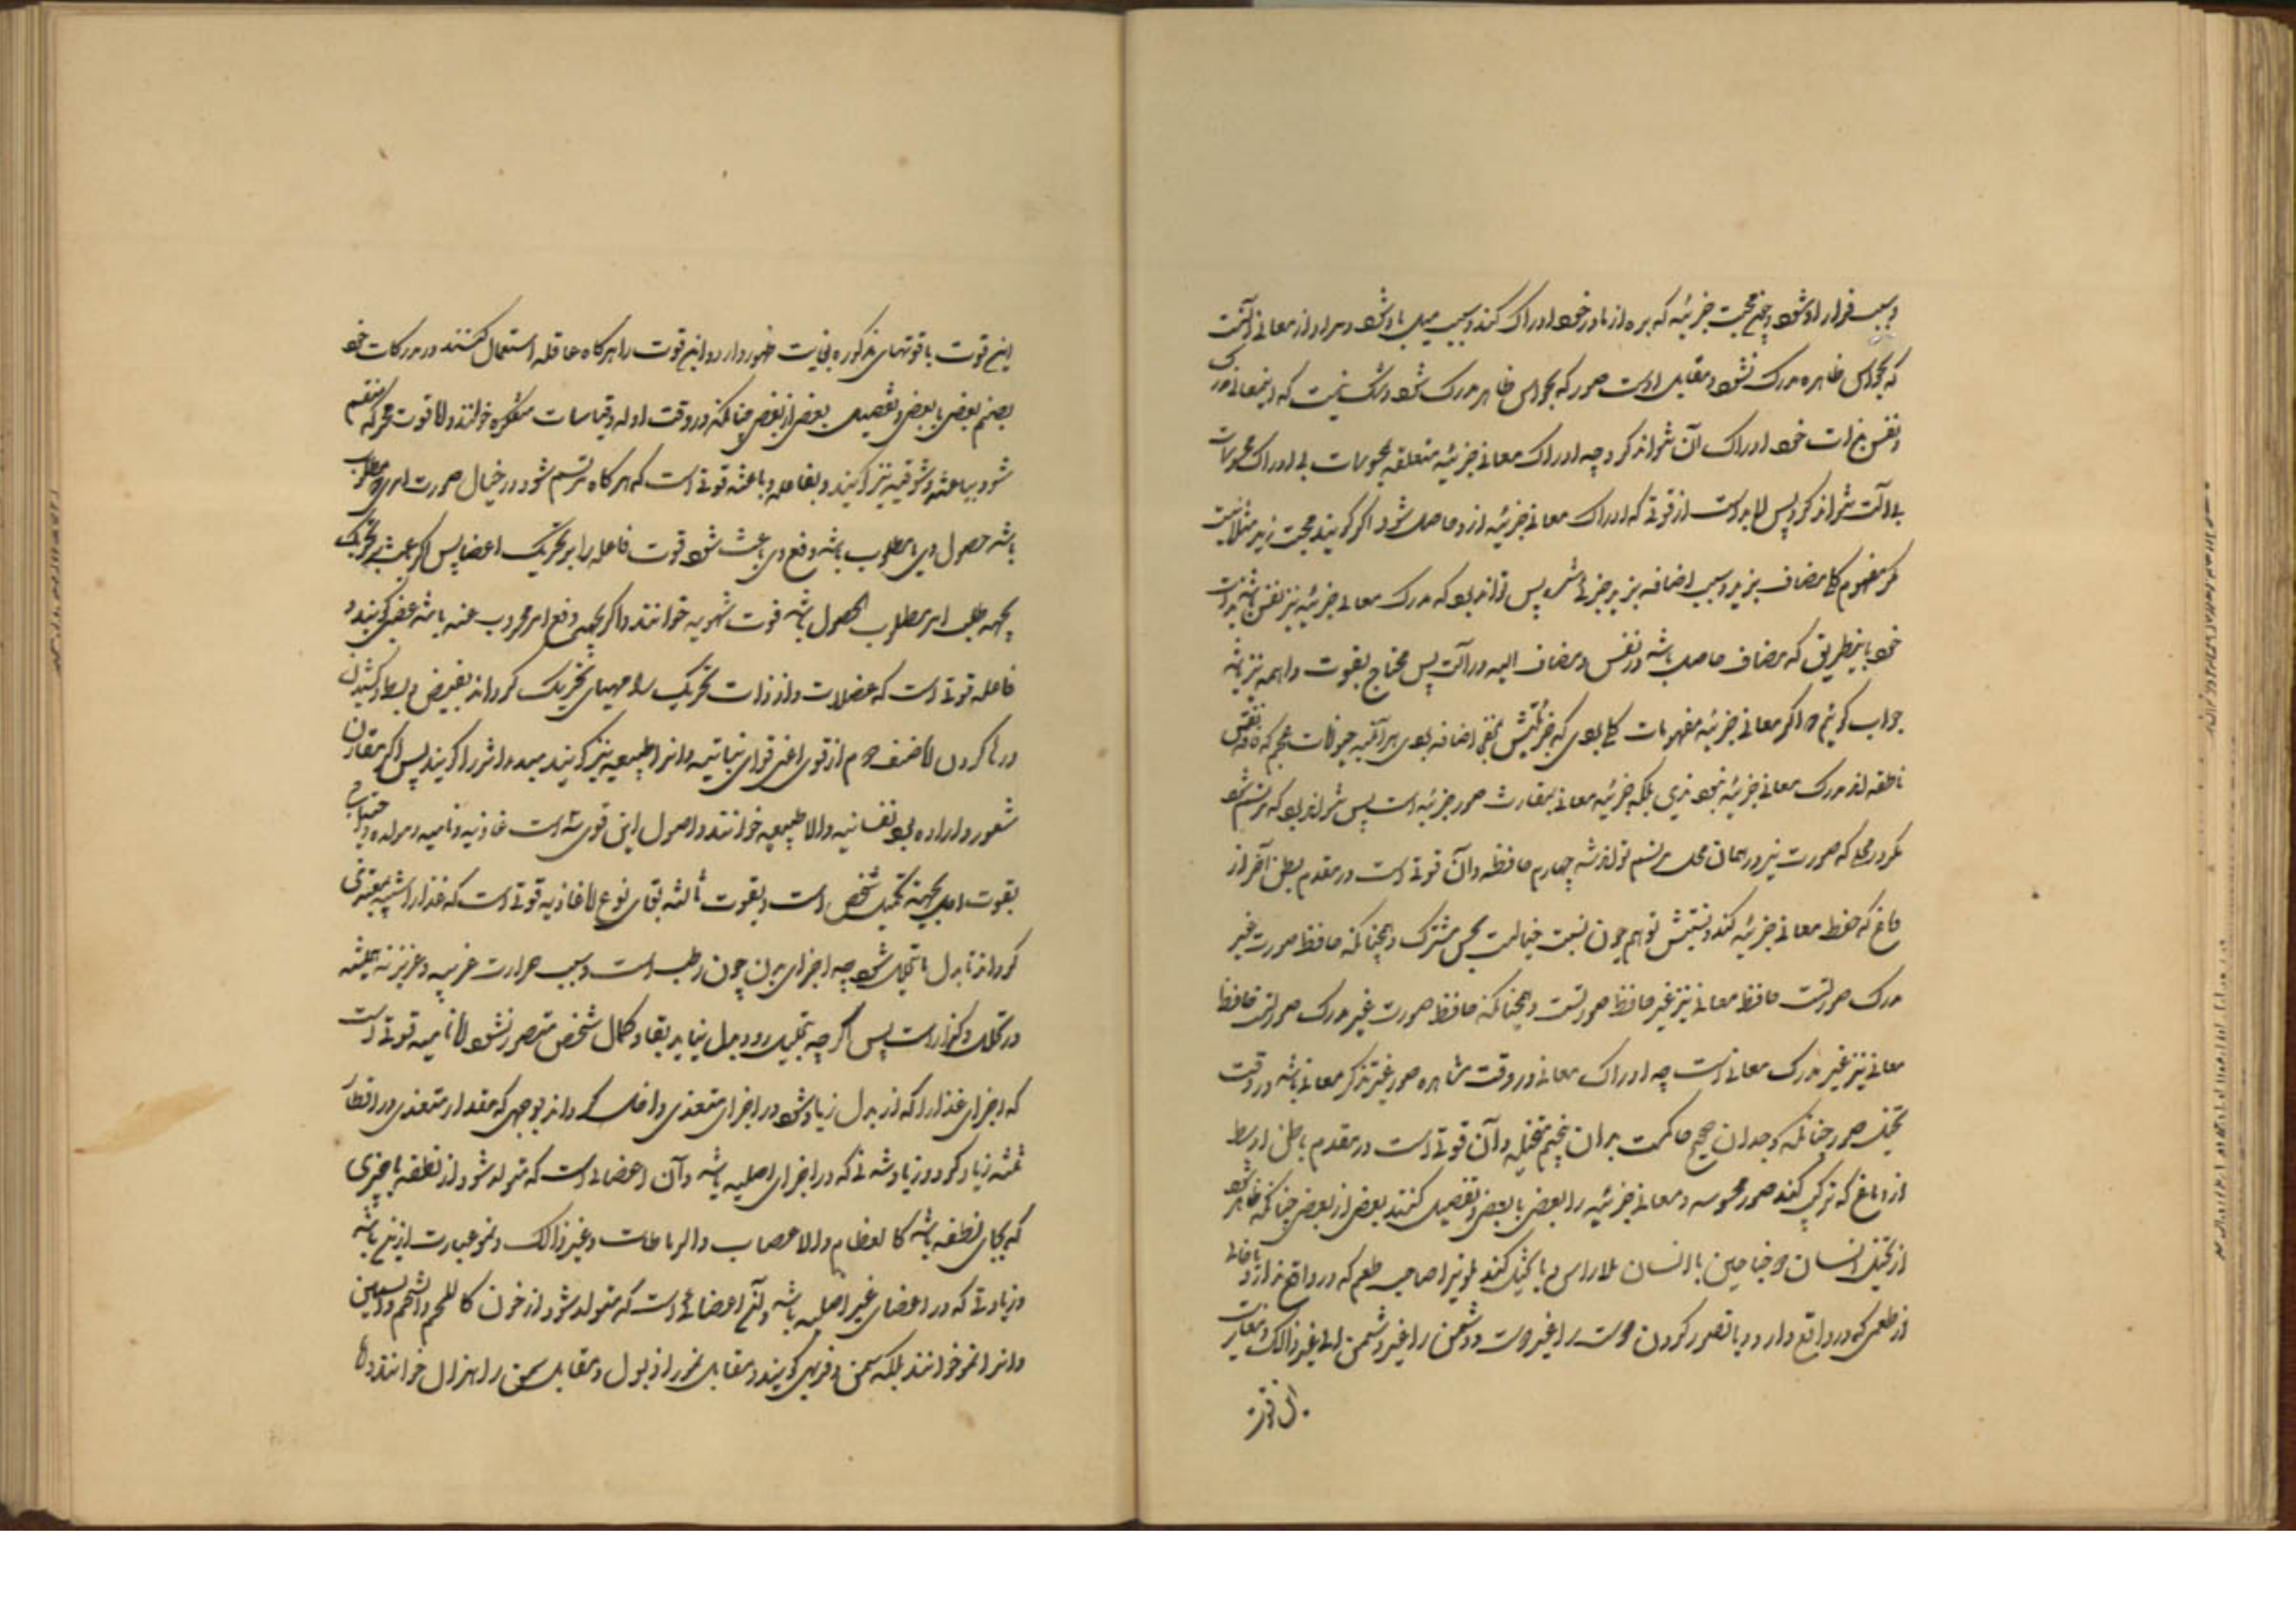 و سبب فرار او شود و چنین محبت جزئیه که بره از مادر خود ادراک کند و سبب میل باو شود و مراد از معانی آنست
که بحواس ظاهره مدرک نشود و مقابل اوست صور که بحواس ظاهر مدرک شود و شک نیست که اینمعانی را
و نفس بذات خود ادراک آن نتواند کرد چه ادراک معانی جزئیه متعلقه بمحسوسات بی ادراک محسوسات
بی آلت نتواند کرد پس لابد است از قوتی که ادراک معانی جزئیه ازو حاصل شود اگر گویند محبت زید مثلا نیست
مگر مفهوم کلی مضاف بزید و سبب اضافه بزید جزئی شد پس تواند بود که مدرک معانی جزئیه نیز نفس باشد بذات
خود باینطریق که مضاف حاصل باشد در نفس و مضاف الیه در آلت پس محتاج بقوت واهمه نیز نباشد
جواب گوئیم که اگر معانی جزئیه مفهومات کلی بودی که جزئیتش بمحض اضافه بودی هر آینه حیوانات عجم که فاقد نفس
ناطقه اند مدرک معانی جزئیه نبودندی بلکه جزئیه معانی بمقارنت صور جزئیه است پس نتواند بود که مرتسم شود
مگر در محلی که صورت نیز در همان محل مرتسم تواند شد چهارم حافظه و آن قوتی است در مقدم بطن آخر از
دماغ که حفظ معانی جزئیه کند و نسبتش بوهم چون نسبت خیالست بحس مشترک و همچنانکه حافظ صورت غیر
مدرک صورتست حافظ معانی نیز غیر حافظ صورتست و همچنانکه حافظ صورت غیر مدرک صورتست حافظ
معانی نیز غیر مدرک معانی است چه ادراک معانی در وقت مشاهده صور غیر تذکر معانی باشد در وقت
تخیل صور چنانکه وجدان صحیح حاکمست بدان پنجم متخیله و آن قوتی است در مقدم باطن اوسط
از دماغ که ترکیب کند صور محسوسه و معانی جزئیه را بعضی با بعضی و تفصیل کنند بعضی از بعضی چنانکه ظاهر شود
از تخیل انسان ذو جناحین یا انسان بلا راس و یا تخیل کند لونیرا صاحب طعم که در واقع ندارد یا خالی
از طعمی که در واقع دارد و یا تصور کردن دوست را غیر دوست و دشمن را غیر دشمن الی غیر ذالک و مغایرت
این قوت
این قوت با قوتهای مذکوره بغایت ظهور دارد و این قوت را هرگاه عاقله استعمال کنند در مدرکات خود
بضم بعضی با بعضی و تفصیل بعضی از بعضی چنانکه در وقت ادله و قیاسات متفکره خوانند و اما قوت محرکه منقسم
شود بباعثه و شوقیه نیز گویند و بفاعله و باعثه قوتی است که هرگاه مرتسم شود در خیال صورت امری که مطلوب
باشد حصول وی یا مطلوب باشد دفع وی باعث شود قوت فاعله را بر تحریک اعضا پس اگر باعث بر تحریک
بجهة طلب امر مطلوب الحصول باشد قوت شهویه خوانند و اگر بجهة دفع امر مهروب عنه باشد غضبی گویند و
فاعله قوتی است که عضلات و ازذات تحریک را مهیای تحریک گرداند بقبض و بسط و کشیدن
و رها کردن اما صنف دوم از قوی اعنی قوای نباتیه و انرا طبیعیه نیز گویند مبدء اثر را گویند پس اگر مقارن
شعور و اراده بود نفسانیه والا طبیعیه خوانند و اصول این قوی سه است غاذیه و نامیه و مولده و احتیاج
بقوت اول بجهة تکمیل شخص است و بقوت ثالثه بقای نوع اما غاذیه قوتی است که غذا را شبیه بمغتذی
گرداند تا بدل ما یتحلل شود چه اجزای بدن چون رطب است و بسبب حرارت غریبه و غریزیه همیشه
در تحلل و گذار است پس اگر چه تحلیل رود و بدل نیاید بقا و کمال شخص متصور نشود اما نامیه قوتی است
که اجزای غذا را که از بدل زیاد شود در اجزای متغذی داخل گرداند بوجهی که مقدار متغذی در اقطار
ثلثه زیاد گردد و زیاد شدنی که در اجزای اصلیه باشد و آن اعضائی است که متولد شود از نطفه یا چیزی
که بجای نطفه باشد کالعظام والاعصاب والرباطات و غیر ذالک و نمو عبارت ازین باشد
و زیادتی که در اعضای غیر اصلیه باشد و آن اعضائی است که متولد شود از خون کاللحم والشحم والسمین
و انرا نمو خوانند بلکه سمن و فربهی گویند و مقابل نمو را ذبول و مقابل سمن را هزال خوانند و اما